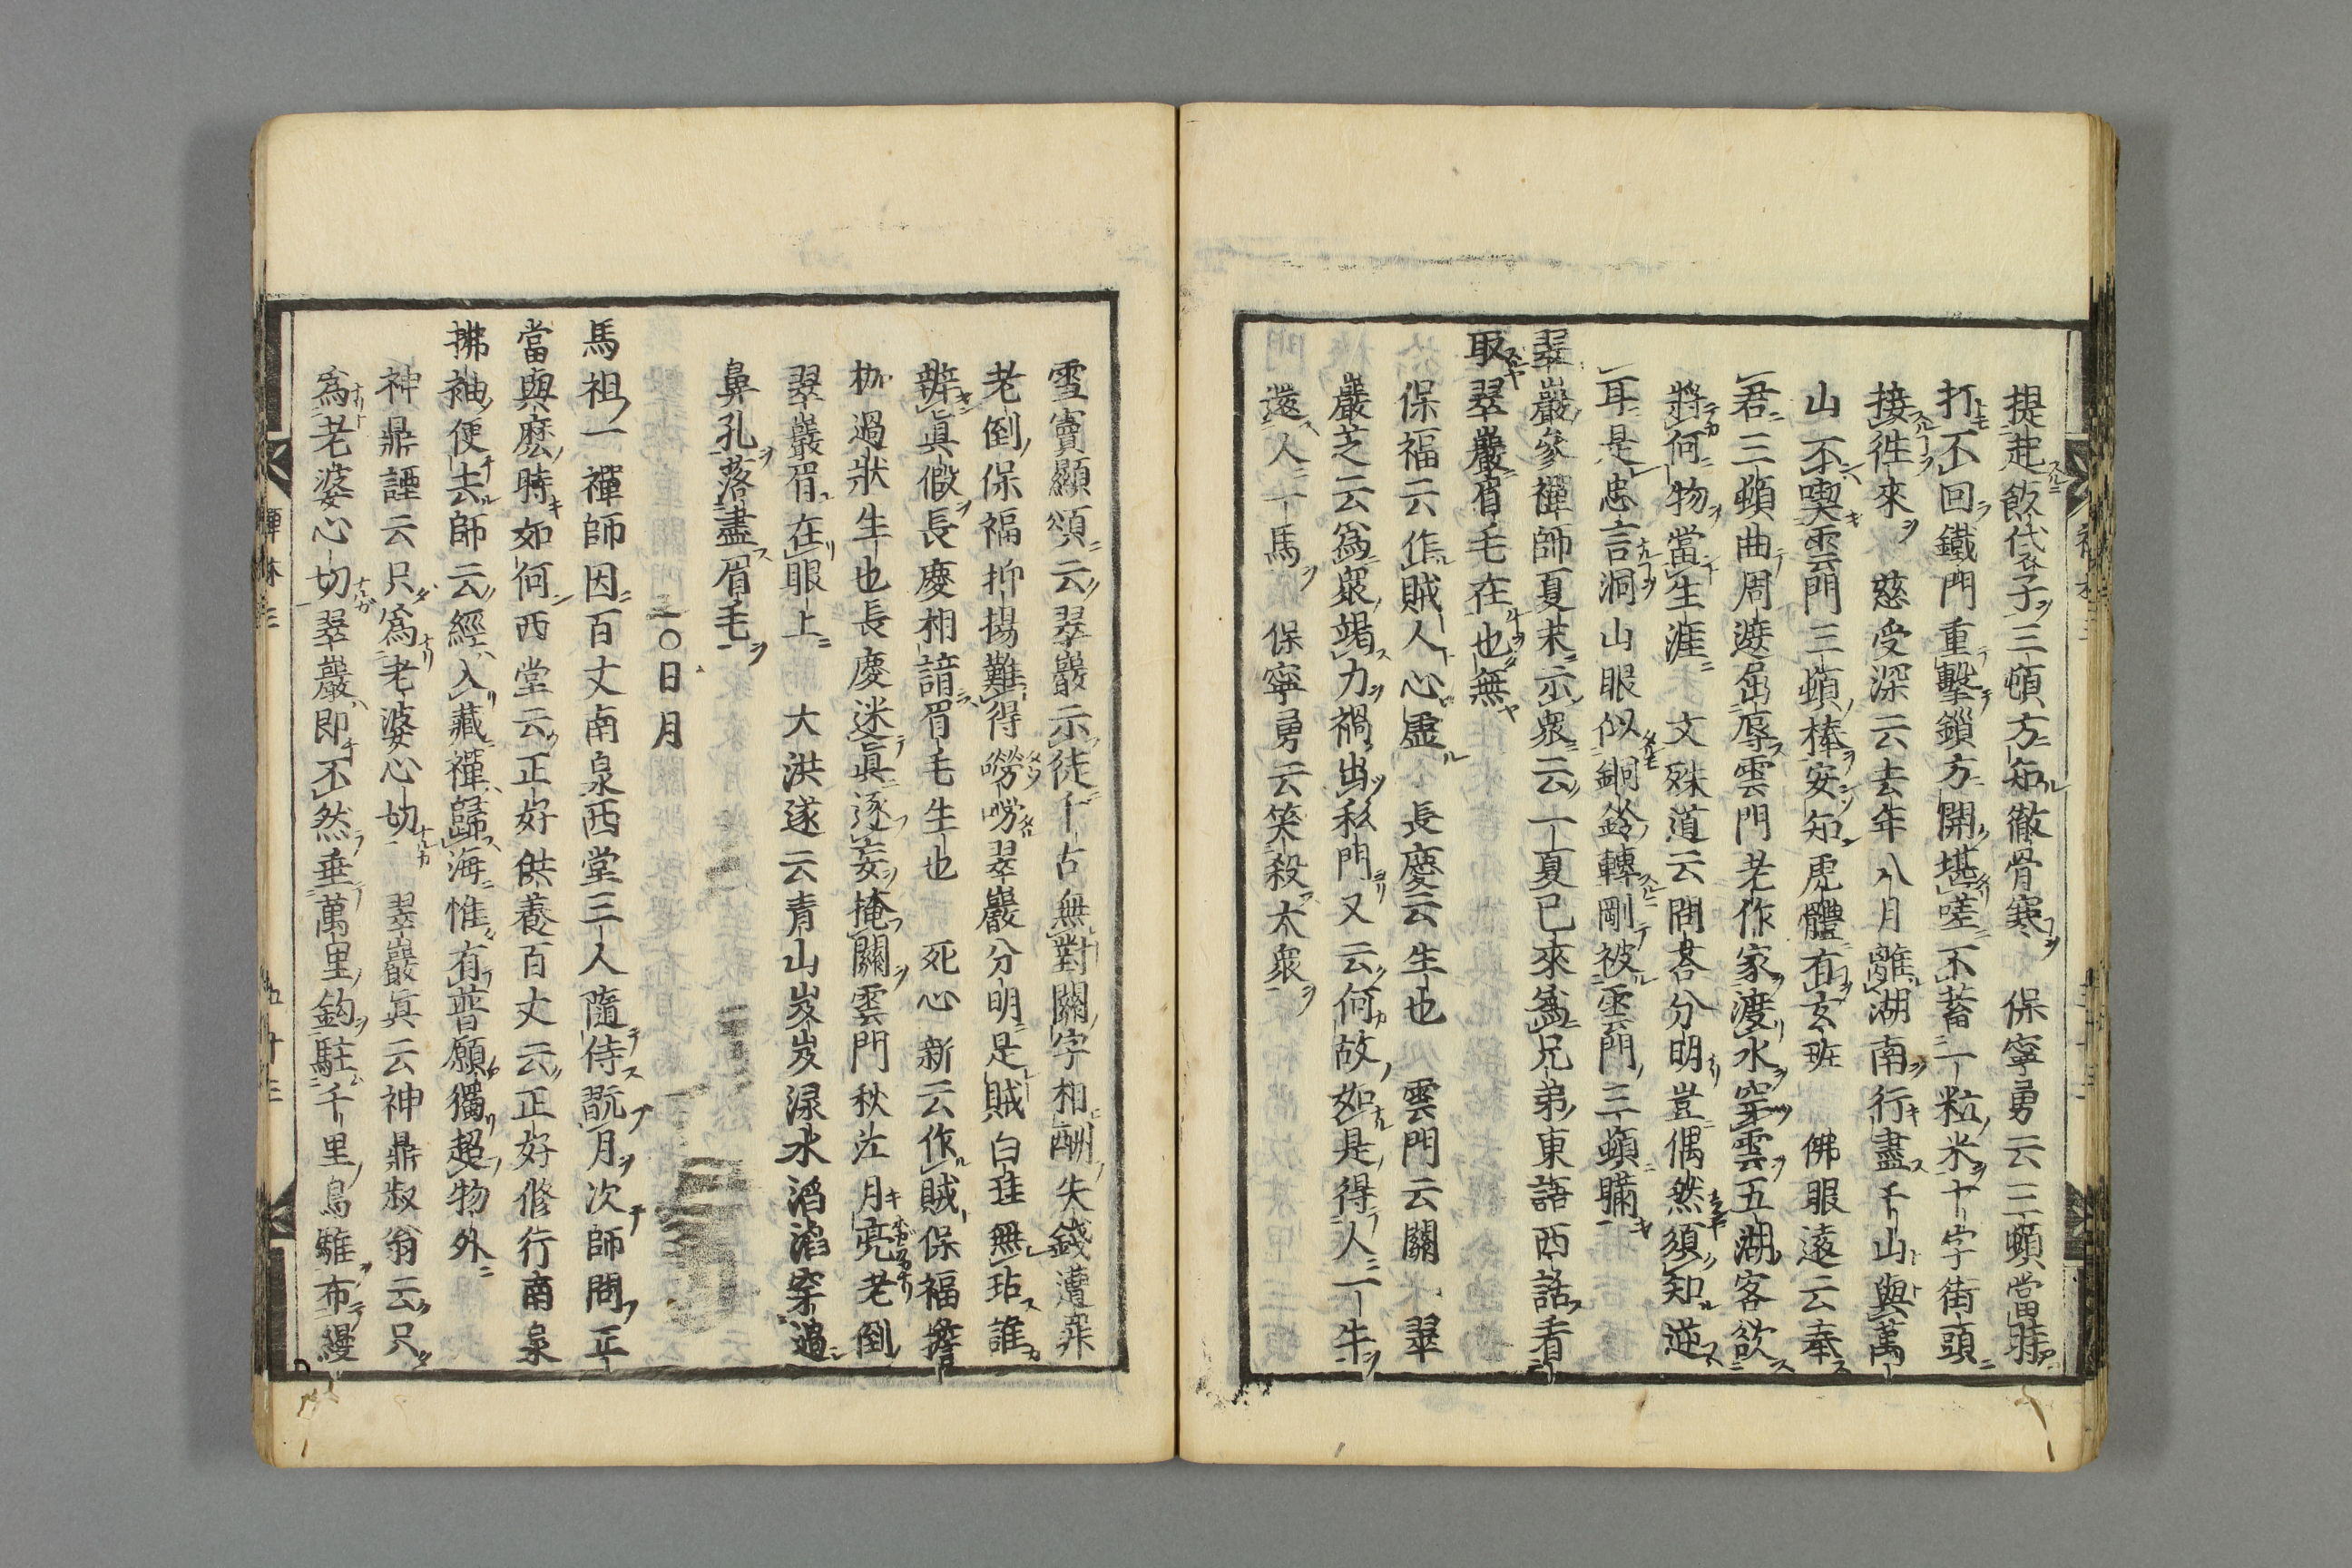 提起飯袋子三頓方知徹骨寒　保寧勇云三頓當時
打不回鐵門重擊鎖方開堪嗟不蓄一粒米十字街頭
接徃來　慈受深云去年八月離湖南行盡千山與萬
山不喫雲門三頓棒安知虎體有玄班　佛眼遠云奉
君三頓曲周遮屈辱雲門老作家渡水穿雲五湖客欲
將何物當生涯　文殊道云問荅分明豈偶然須知逆
耳是忠言洞山眼似銅鈴轉剛被雲門三頓瞞
翠巖參禪師夏末示衆云一夏已來爲兄弟東語西話看
取翠巖眉毛在也無
保福云作賊人心虛　長慶云生也　雲門云關　翠
巖芝云爲衆竭力禍出私門又云何故如是得人一牛
還人一馬　保寧勇云笑殺太衆
雪竇顯頌云翠巖示徒千古無對關字相酬失錢遭罪
老倒保福抑揚難得嘮嘮翠巖分明是賊白珪無玷誰
辨眞假長慶相諳眉毛生也　死心新云作賊保福擔
枷過狀生也長慶迷眞逐妄掩關雲門秋江月亮老倒
翠巖眉在眼上　大洪遂云青山岌岌渌水滔滔穿過
鼻孔落盡眉毛
○日月
馬祖一禪師因百丈南泉西堂三人隨侍翫月次師問正
當與麽時如何西堂云正好供養百丈云正好修行南泉
拂袖便去師云經入藏禪歸海惟有普願獨超物外
神鼎諲云只爲老婆心切　翠巖眞云神鼎叔翁云只
爲老婆心切翠巖即不然垂萬里鈎駐千里烏騅布縵
禪林三
五十三